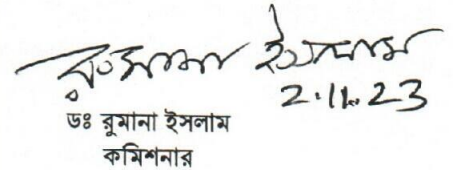 রুমানা ইসলাম
2.11.23
ডঃ রুমানা ইসলাম
কমিশনার